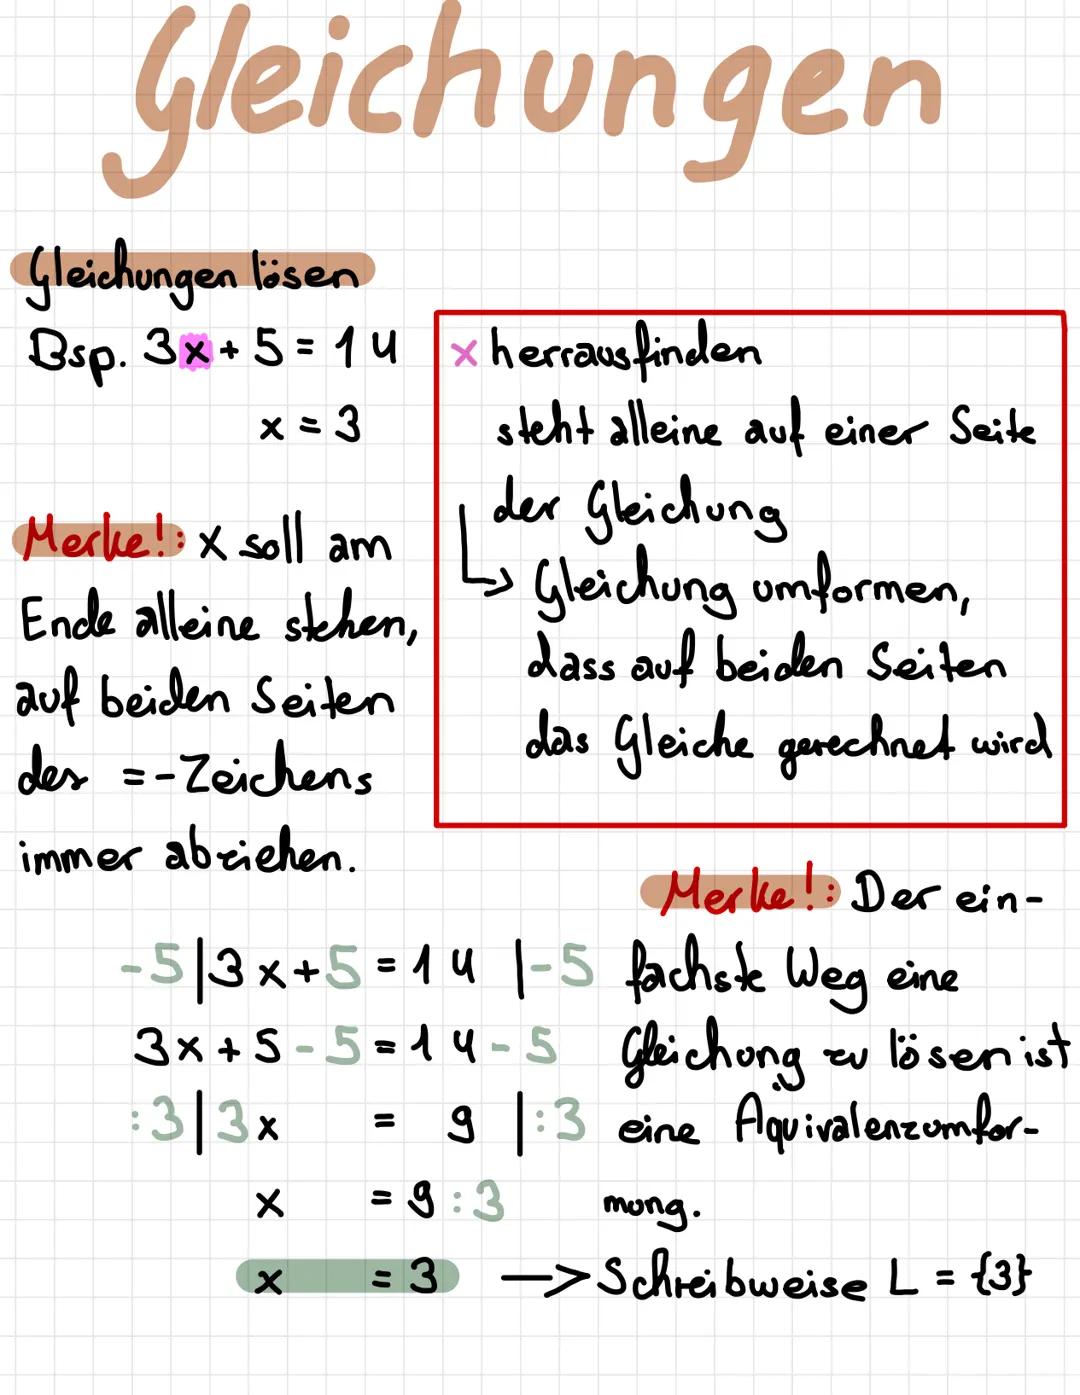 Gleichungen
Gleichungen lösen
Bsp. 3x + 5 = 14
x = 3
x herrausfinden
steht alleine auf einer Seite
der Gleichung
↳ Gleichung umformen,
dass auf beiden Seiten
das Gleiche gerechnet wird
Merke!: x soll am
Ende alleine stehen,
auf beiden Seiten
des =-Zeichens
immer abziehen.
Merke!: Der ein-
fachste Weg eine
Gleichung zu lösen ist
eine Äquivalenzumfor-
mung.
-5|3x+5 = 14 |-5
3x+5-5 = 14-5
:3|3x = 9 |:3
x = 9:3
x = 3 —> Schreibweise L = {3}